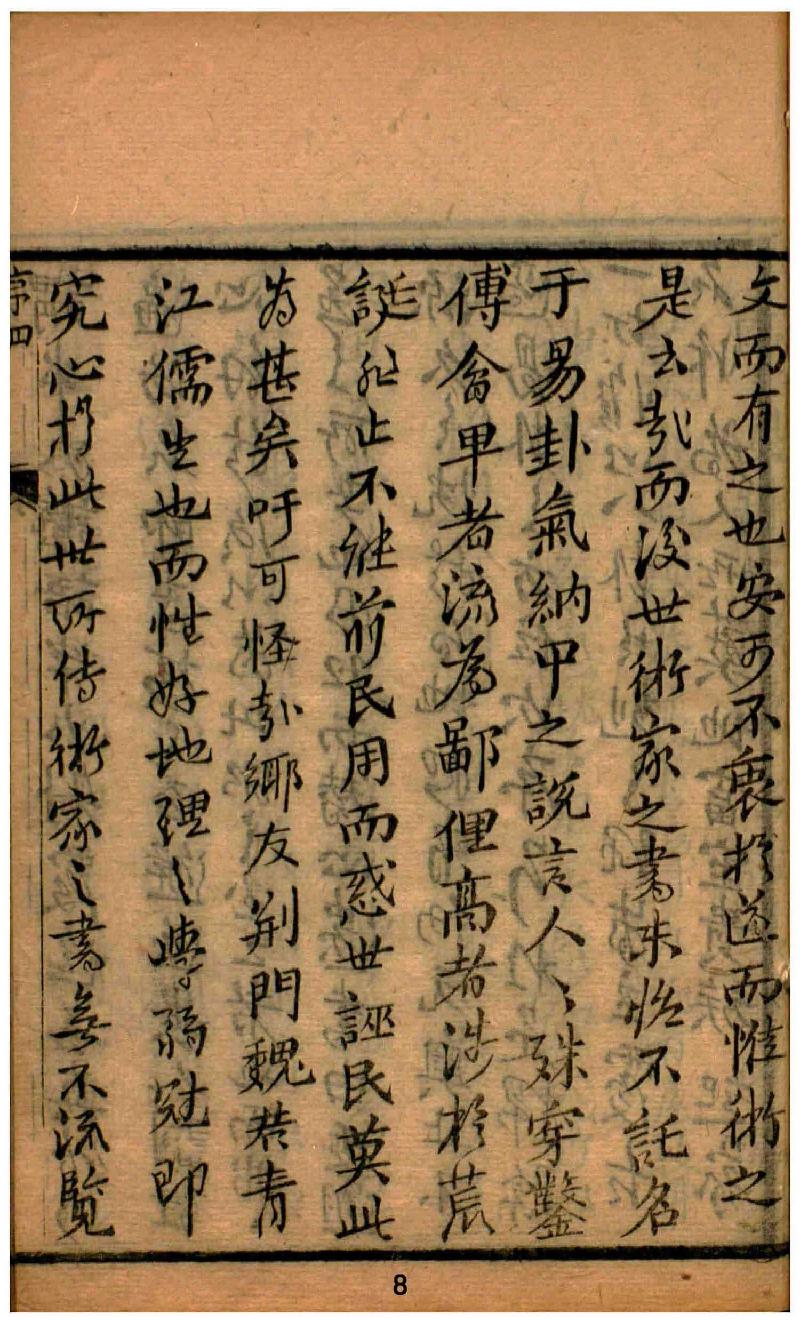 文而有之也安可不衷扵道而惟術之
是去哉而後世術家之書未嘗不託名
于易卦氣納甲之說言人〻殊穿鑿
傅會卑者流為鄙俚高者涉於荒
誕非止不能前民用而惑世誣民莫此
為甚矣吁可怪哉鄉友荆門魏君青
江儒生也而性好地理〻學弱冠即
究心扵此世所传術家之書無不流覧
序四
8